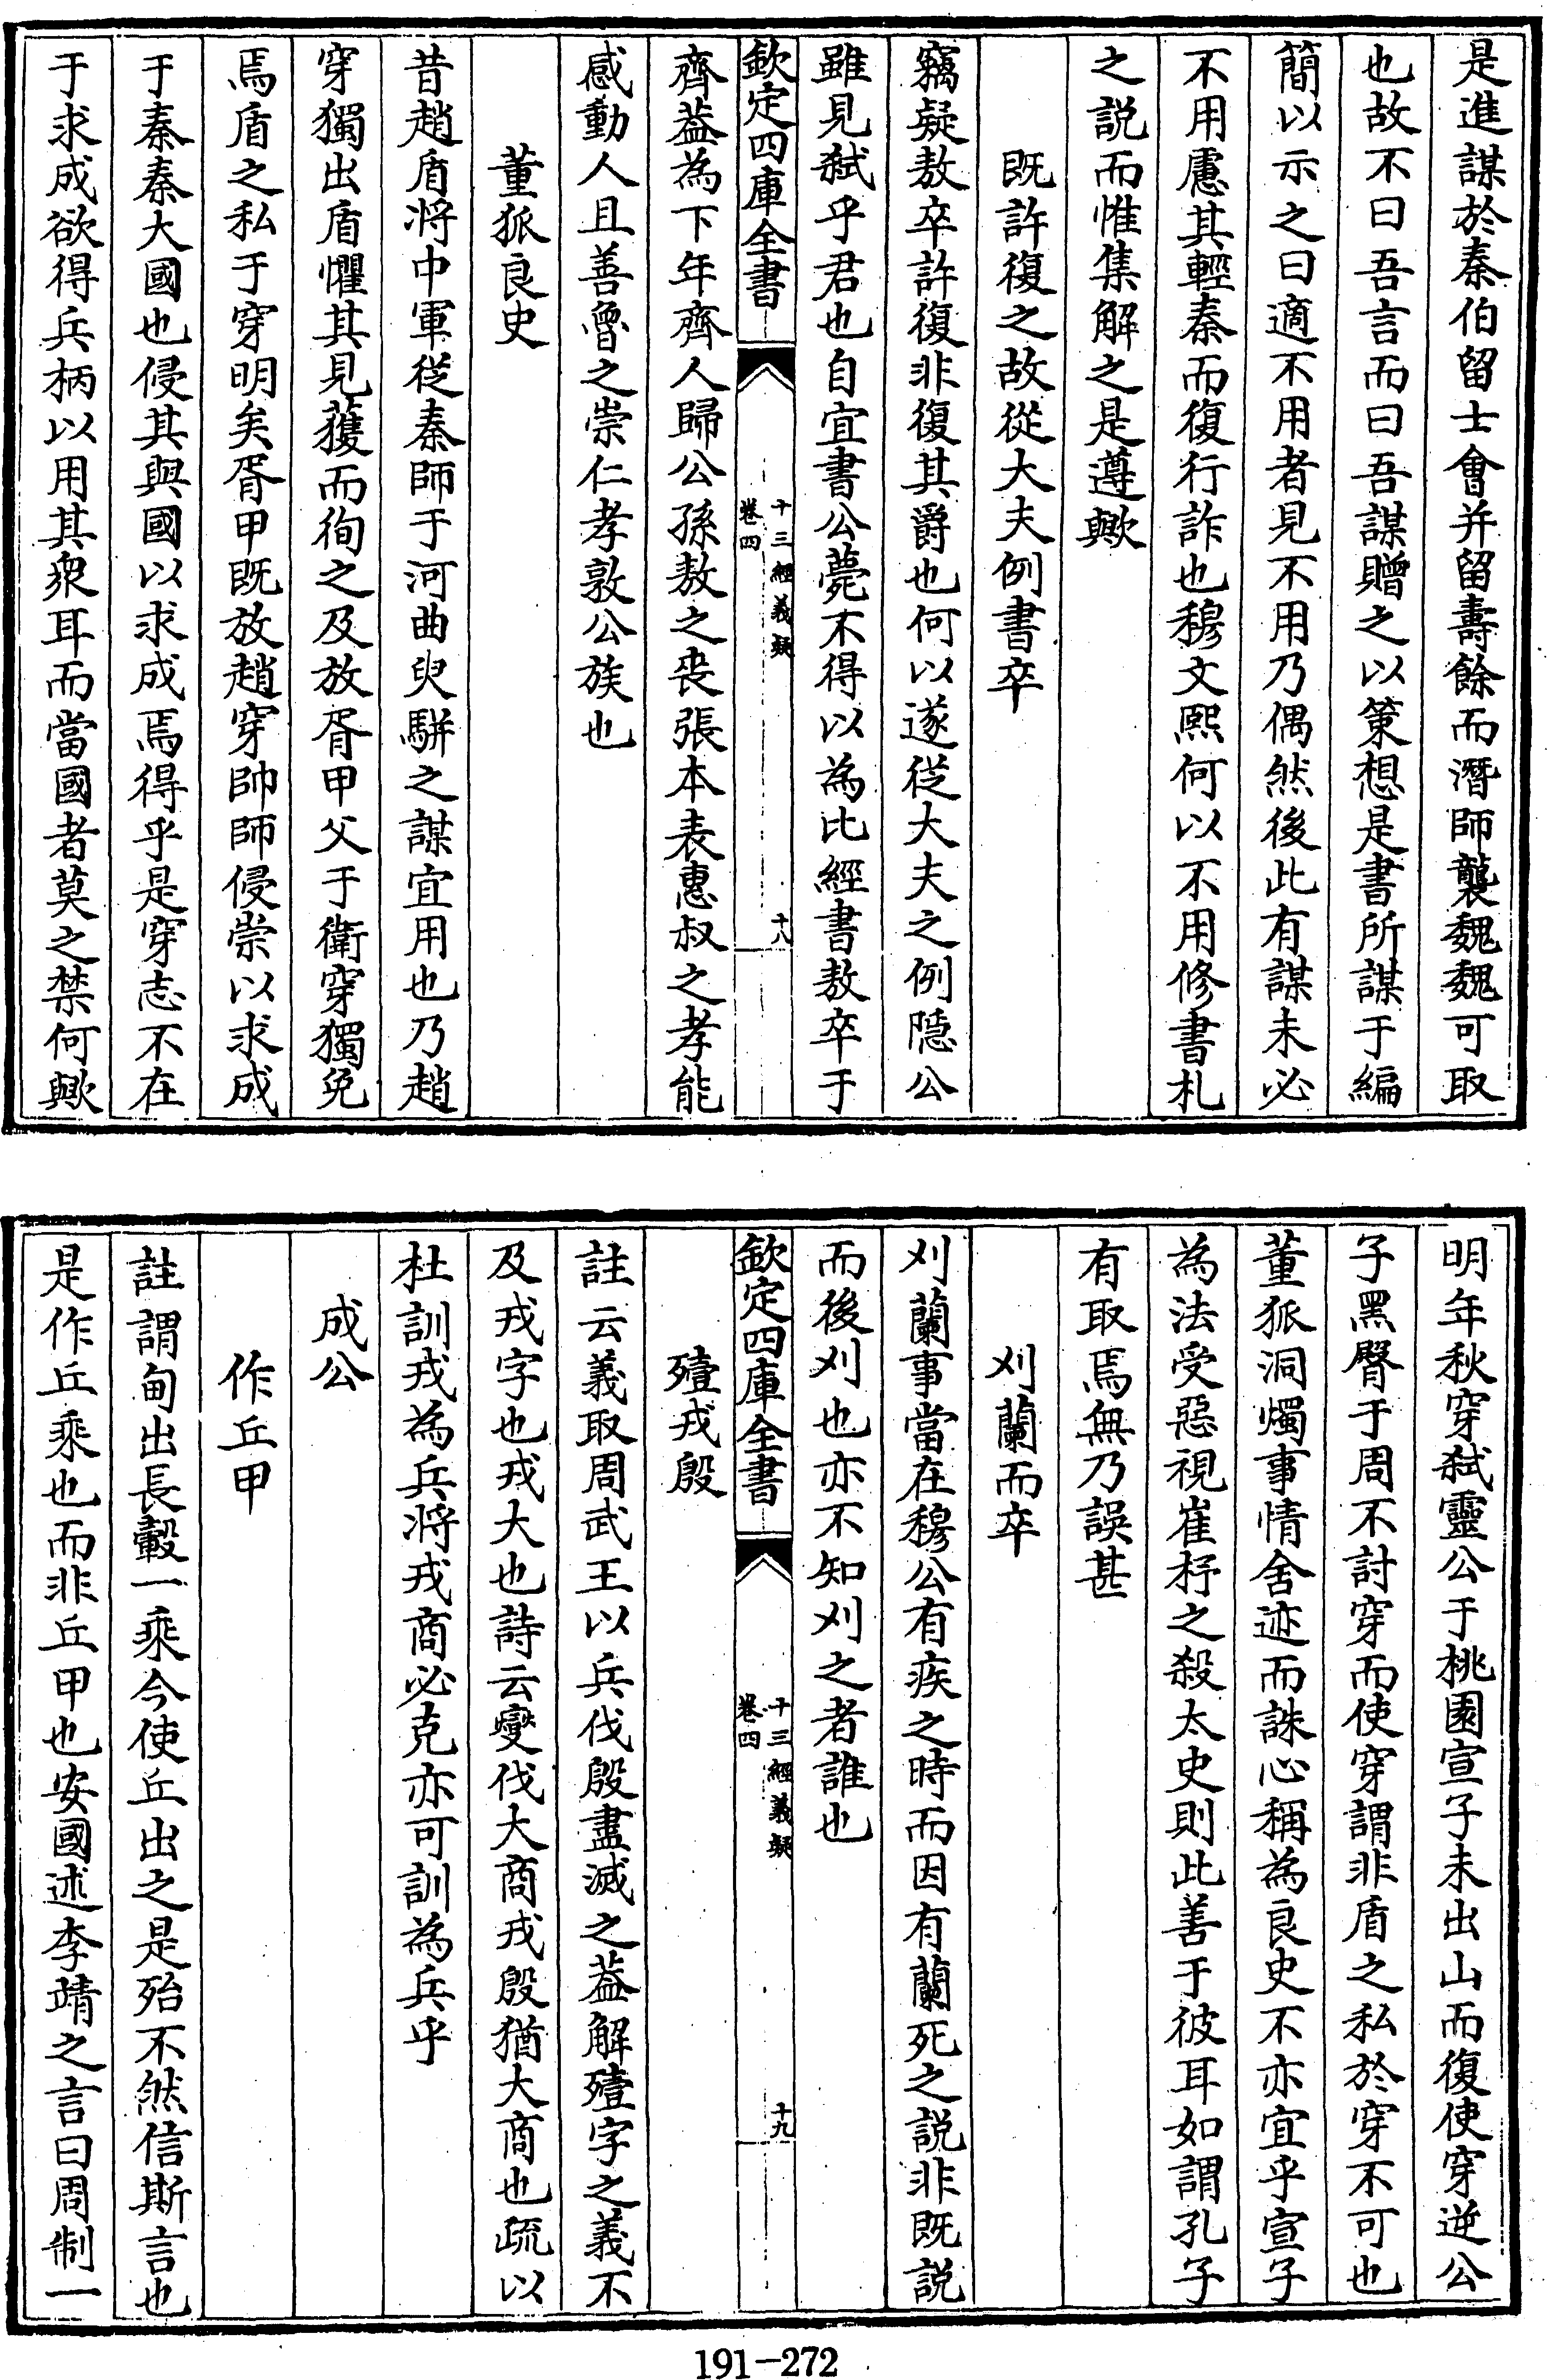 是進謀於秦伯留士會并留壽餘而潛師襲魏魏可取
也故不曰吾言而曰吾謀贈之以策想是書所謀于編
簡以示之曰適不用者見不用乃偶然後此有謀未必
不用慮其輕秦而復行詐也穆文熙何以不用修書札
之説而惟集解之是遵歟
既許復之故從大夫例書卒
竊疑敖卒許復非復其爵也何以遂從大夫之例隠公
雖見弑乎君也自宜書公薨不得以為比經書敖卒于
欽定四庫全書
十三經義疑
卷四
十八
齊葢為下年齊人歸公孫敖之丧張本表惠叔之孝能
感動人且善魯之崇仁孝敦公族也
董狐良史
昔趙盾将中軍從秦師于河曲臾駢之謀宜用也乃趙
穿獨出盾懼其見獲而徇之及放胥甲父于衛穿獨免
焉盾之私于穿明矣胥甲既放趙穿帥師侵崇以求成
于秦秦大國也侵其與國以求成焉得乎是穿志不在
于求成欲得兵柄以用其衆耳而當國者莫之禁何歟
明年秋穿弑靈公于桃園宣子未出山而復使穿逆公
子黑臀于周不討穿而使穿謂非盾之私於穿不可也
董狐洞燭事情舍迹而誅心稱為良史不亦宜乎宣子
為法受惡視崔杼之殺太史則此善于彼耳如謂孔子
有取焉無乃誤甚
刈蘭而卒
刈蘭事當在穆公有疾之時而因有蘭死之説非既説
而後刈也亦不知刈之者誰也
欽定四庫全書
十三經義疑
卷四
十九
殪戎殷
註云義取周武王以兵伐殷盡滅之葢解殪字之義不
及戎字也戎大也詩云燮伐大商戎殷猶大商也疏以
杜訓戎為兵将戎商必克亦可訓為兵乎
成公
作丘甲
註謂甸出長轂一乘今使丘出之是殆不然信斯言也
是作丘乘也而非丘甲也安國述李靖之言曰周制一
191-272